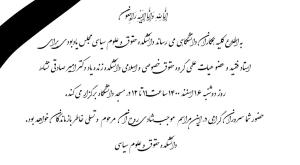 انا لله و انا الیه راجعون
به اطلاع کلیه همکاران دانشگاهی می رساند دانشکده حقوق و علوم سیاسی مجلس یادبودی برای
استاد فقید و عضو هیات علمی گروه حقوق خصوصی و اسلامی دانشکده زنده یاد دکتر امیر صادقی نشاط
روز دوشنبه ۱۶ اسفند ۱۴۰۰ ساعت ۱۱ تا ۱۲ در مسجد دانشگاه برگزار می کند.
حضور شما سروران گرامی در این مراسم موجب شادی روح آن مرحوم و تسلی خاطر بازماندگان خواهد بود.
دانشکده حقوق و علوم سیاسی